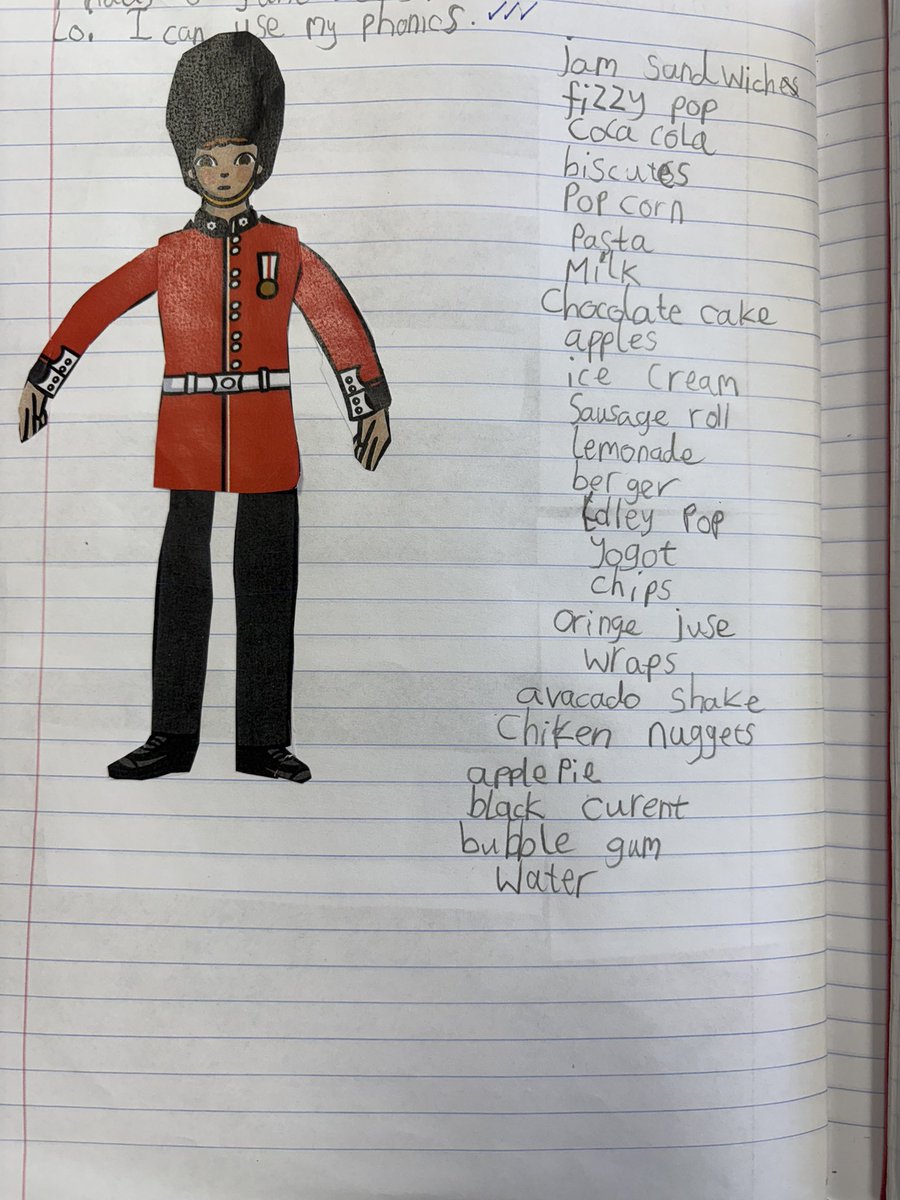 Lo. I can use my phonics.
jam sandwiches
fizzy pop
Coca cola
biscutes
Pop corn
Pasta
Milk
Chocolate cake
apples
ice cream
Sausage roll
Lemonade
berger
Pop
yogot
chips
oringe juse
wraps
avacado shake
Chiken nuggets
apple Pie
black curent
bubble gum
Water